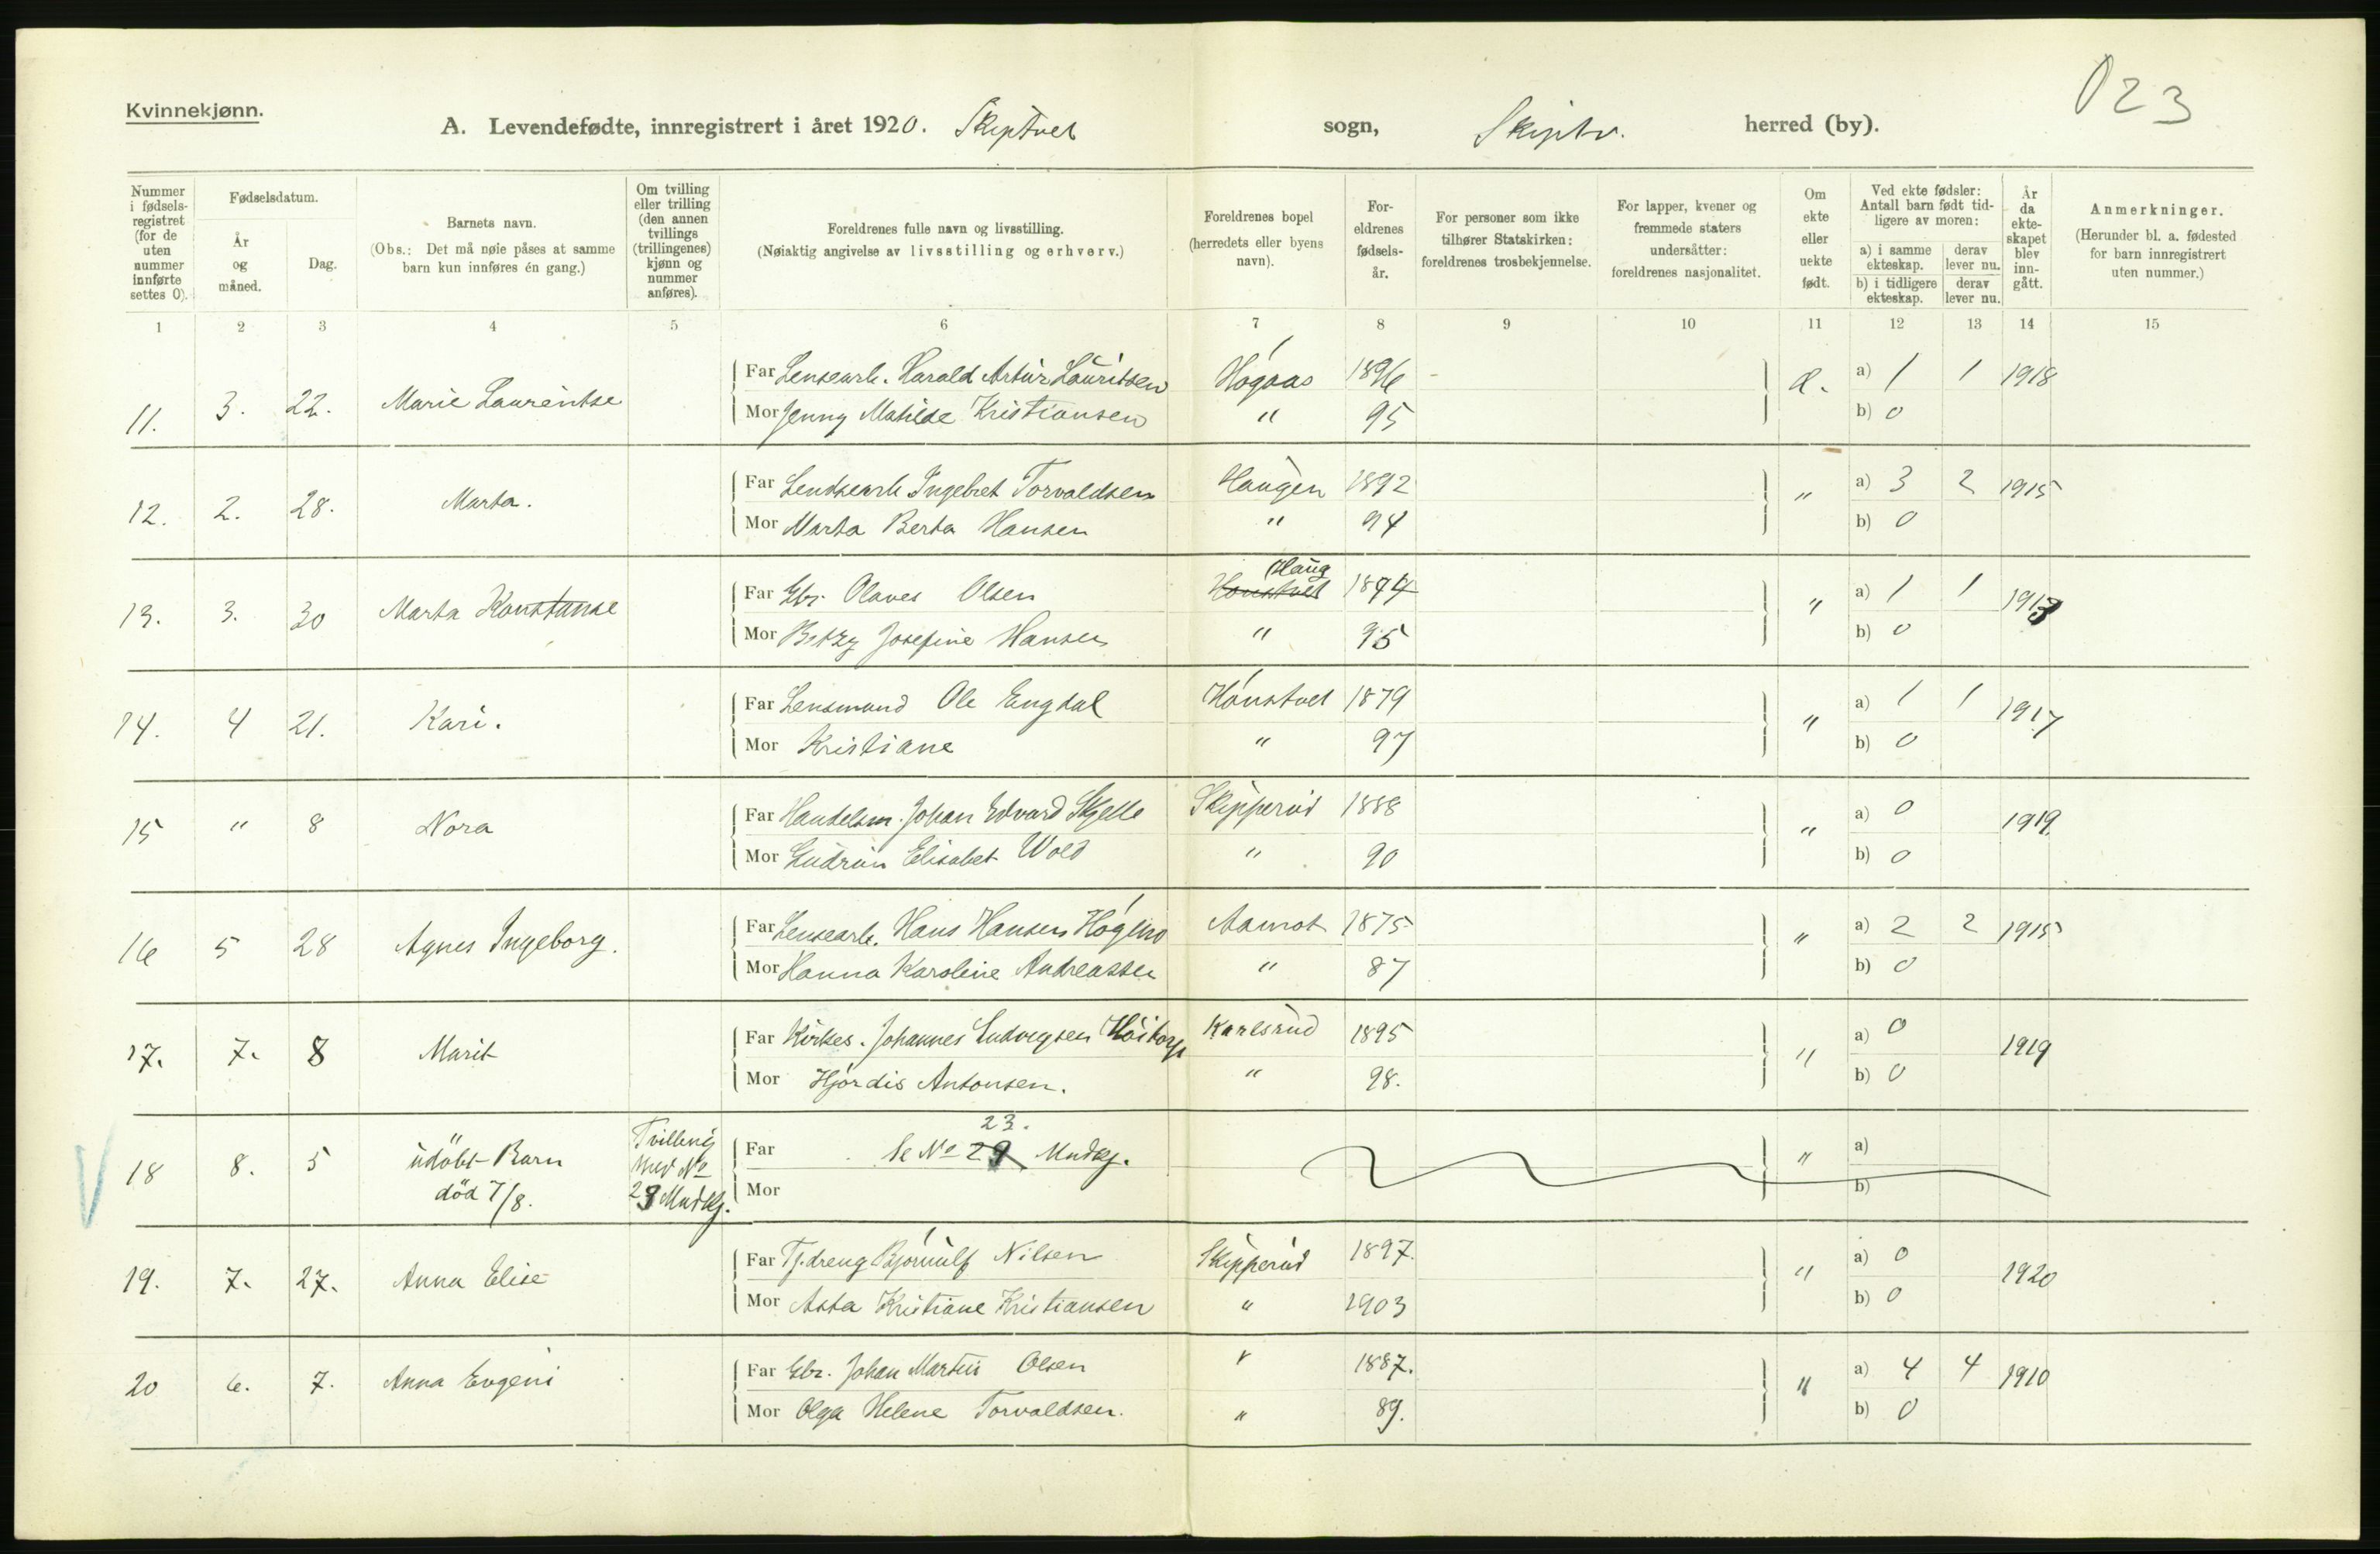 023
Kvinnekjønn.
A. Levendefødte, innregistrert i året 1920. Skiptvet sogn, Skiptv. herred (by).
Nummer i fødsels-registret (for de uten nummer innførte settes 0).
Fødselsdatum.
År og måned.
Dag.
Barnets navn.
(Obs.: Det må nøie påses at samme barn kun innføres én gang.)
Om tvilling eller trilling (den annen tvillings (trillingenes) kjønn og nummer anføres).
Foreldrenes fulle navn og livsstilling.
(Nøiaktig angivelse av livsstilling og erhverv.)
Foreldrenes bopel (herredets eller byens navn).
For-eldrenes fødsels-år.
For personer som ikke tilhører Statskirken: foreldrenes trosbekjennelse.
For lapper, kvener og fremmede staters undersåtter: foreldrenes nasjonalitet.
Om ekte eller uekte født.
Ved ekte fødsler: Antall barn født tid-ligere av moren:
a) i samme ekteskap. derav lever nu.
b) i tidligere ekteskap. derav lever nu.
År da ekte-skapet blev inn-gått.
Anmerkninger.
(Herunder bl. a. fødested for barn innregistrert uten nummer.)
1 2 3 4 5 6 7 8 9 10 11 12 13 14 15
11. 3. 22. Marie Laurentse Far Lensearb. Harald Artur Lauritsen Hógaas 1896 - Æ. a) 1 1 1918
Mor Jenny Matilde Kristiansen " 95 b) 0
12. 2. 28. Marta. Far Lendsearb Ingebret Torvaldsen Haugen 1892 " a) 3 2 1915
Mor Marta Berta Hansen " 94 b) 0
13. 3. 30 Marta Konstanse Far Gbr. Olaves Olsen Honstvet Haug 1894 " a) 1 1 1913
Mor Betzy Josefine Hansen " 95 b) 0
14. 4 21. Kari. Far Lensmand Ole Engdal Hónstvet 1879 " a) 1 1 1917
Mor Kristiane " 97 b) 0
15 " 8 Nora Far Handelsm. Johan Edvard Skjelle Skipperud 1888 " a) 0 1919.
Mor Gudrun Elisabet Wold " 90 b) 0
16 5 28 Agnes Ingeborg. Far Lensearb. Hans Hansen Aamot 1875 " a) 2 2 1915
Mor Hanna Karoline Andreassen " 87 b) 0
17. 7. 8 Marit Far Kirkes. Johannes Ludvigsen Höitorp Karlsrud 1895 " a) 0 1919
Mor Hjórdis Antonsen. " 98. b) 0
18 8. 5 udöbt Barn död 7/8. Tvilling med No 23 Mndkj. Far Se No 29 23. Mndkj. " a)
Mor b)
19. 7. 27. Anna Elise Far Tj.dreng Bjórnulf Nilsen Skipperud 1897. " a) 0 1920
Mor Asta Kristiane Kristiansen " 1903 b) 0
20 6. 7. Anna Evgeni Far Gbr. Johan Martin Olsen " 1887. " a) 4 4 1910
Mor Olga Helene Torvaldsen. " 89. b) 0